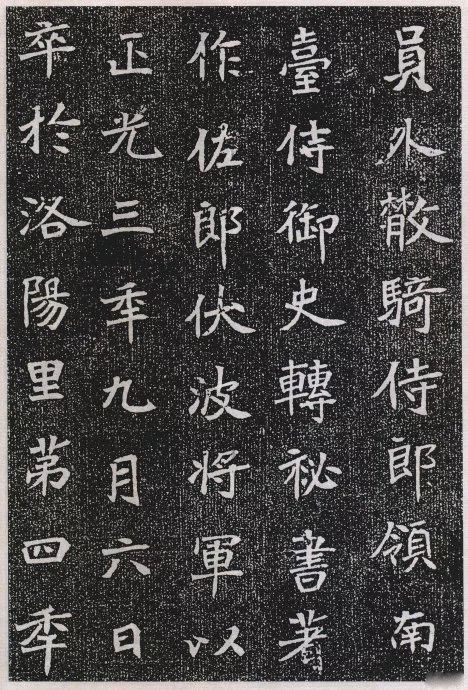 員外散騎侍郎領南
臺侍御史轉祕書著
作佐郎伏波將軍以
正光三年九月六日
卒於洛陽里第四年